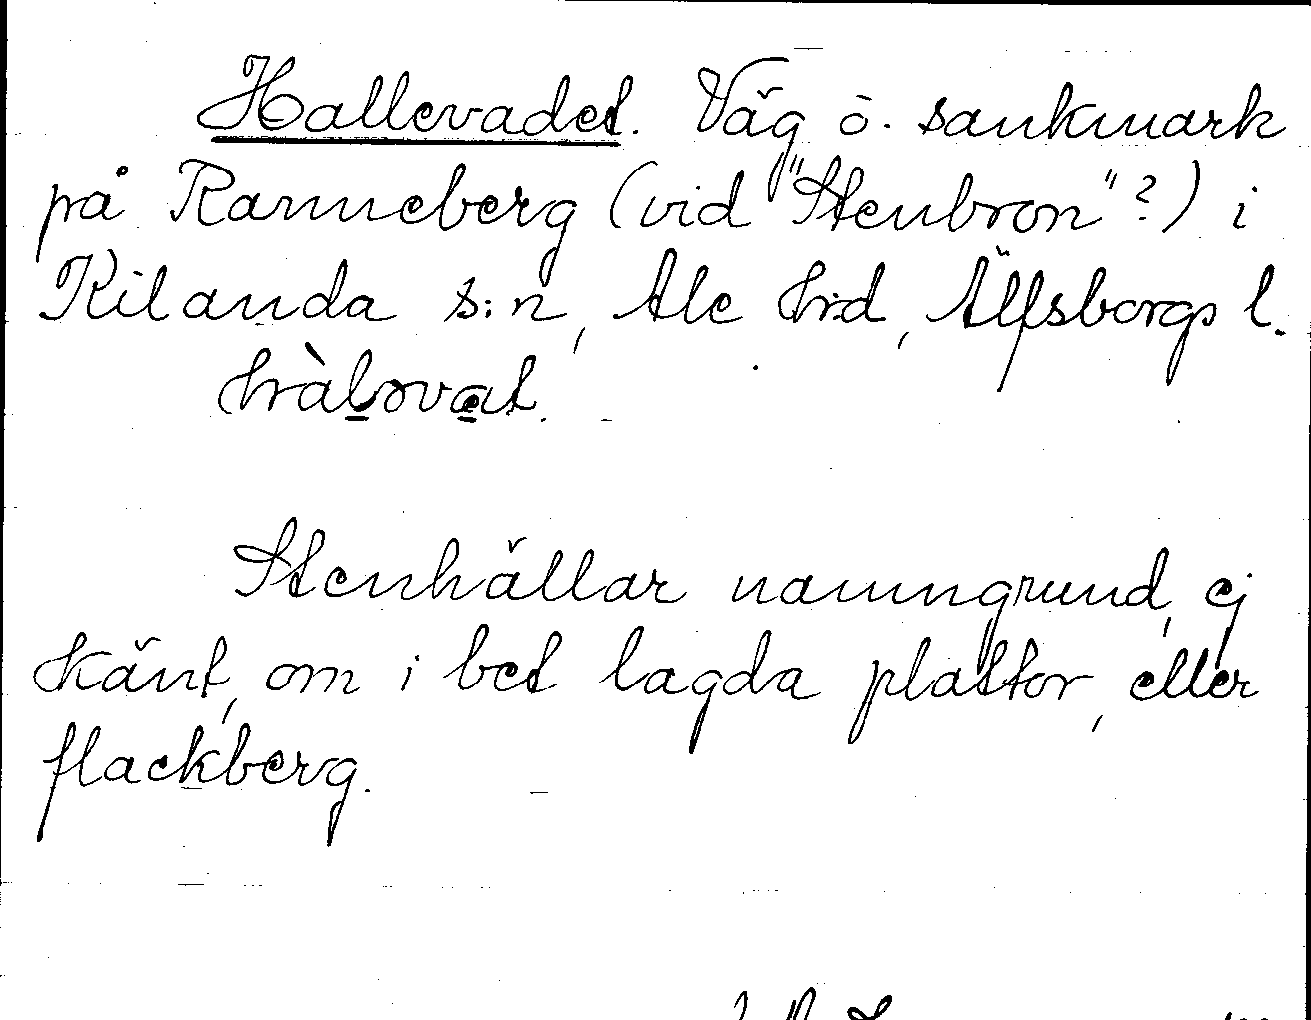 Hallevadet. Väg ö. sankmark
på Ranneberg (vid "Stenbron"?) i
Kilanda s:n, Ale hd, Älfsborgs l.
hàlovat.
Stenhällar namngrund, ej
känt, om i bet lagda plattor, eller
flackberg.